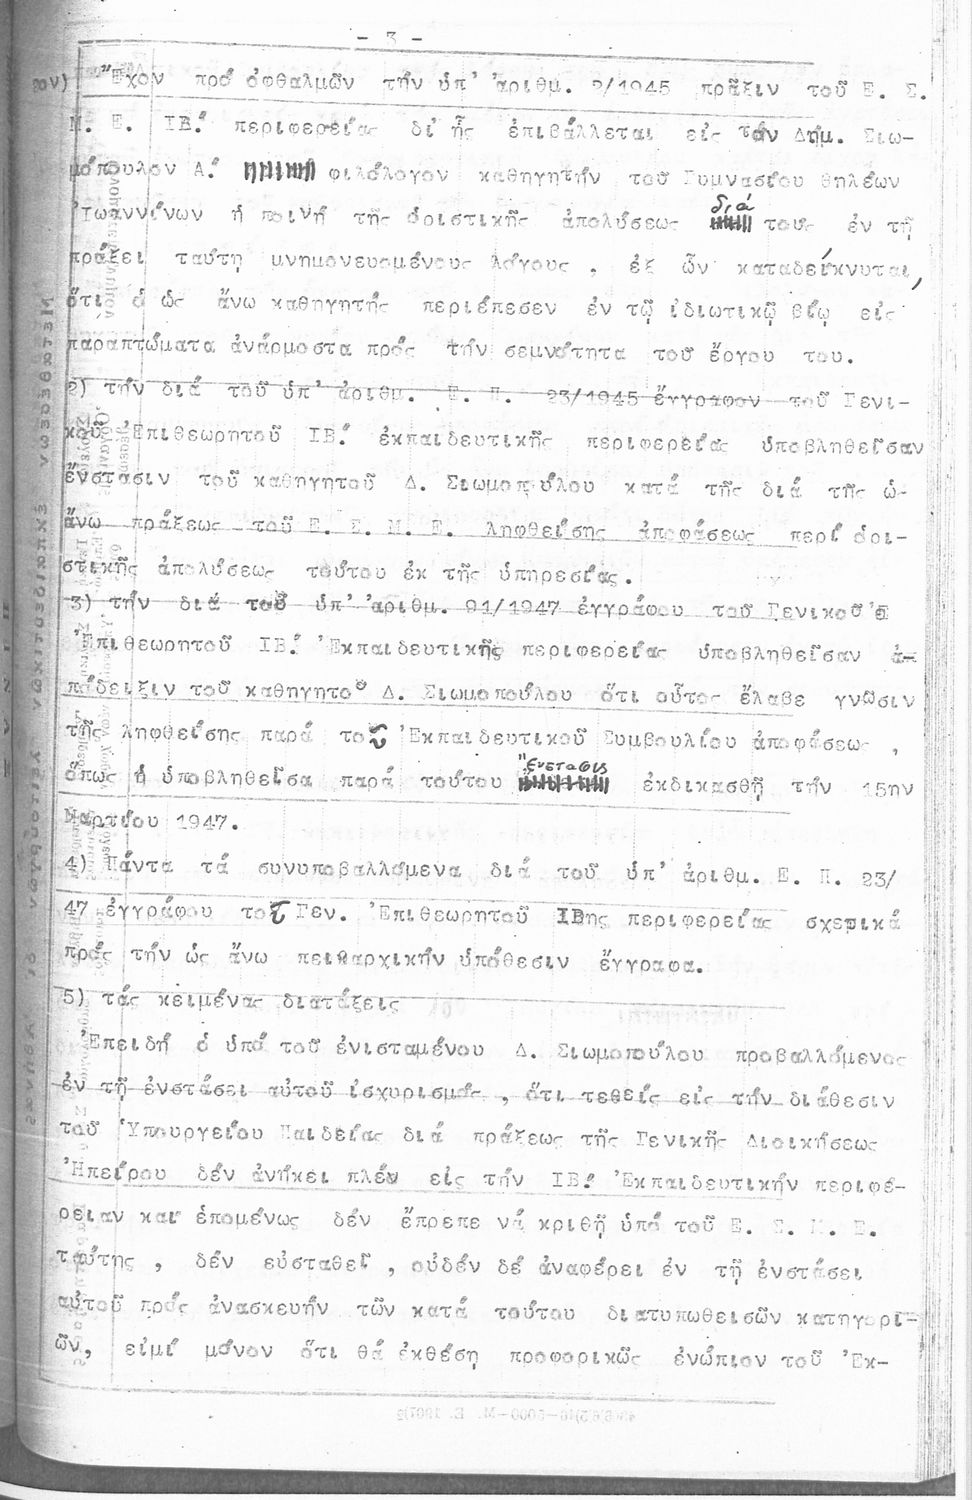 - 3 -
ον) "Ἔχον πρό ὀφθαλμῶν τήν ὑπ' ἀριθμ. 2/1945 πρᾶξιν τοῦ Ε. Σ.
Μ. Ε. ΙΒ.' περιφερείας δι' ἧς ἐπιβάλλεται εἰς τόν Δημ. Σιω-
μόπουλον Α.' φιλόλογον καθηγητήν τοῦ Γυμνασίου θηλέων
Ἰωαννίνων ἡ ποινή τῆς ὁριστικῆς ἀπολύσεως διά τούς ἐν τῇ
πράξει ταύτῃ μνημονευομένους λόγους , ἐξ ὧν καταδείκνυται,
ὅτι ὁ ὡς ἄνω καθηγητής περιέπεσεν ἐν τῷ ἰδιωτικῷ βίῳ εἰς
παραπτώματα ἀνάρμοστα πρός τήν σεμνότητα τοῦ ἔργου του.
2) τήν διά τοῦ ὑπ' ἀριθμ. Ε. Π. 23/1945 ἔγγραφον τοῦ Γενι-
κοῦ Ἐπιθεωρητοῦ ΙΒ.' ἐκπαιδευτικῆς περιφερείας ὑποβληθεῖσαν
ἔνστασιν τοῦ καθηγητοῦ Δ. Σιωμοπούλου κατά τῆς διά τῆς ὡ-
ἄνω πράξεως τοῦ Ε. Σ. Μ. Ε. ληφθείσης ἀποφάσεως περί ὁρι-
στικῆς ἀπολύσεως τούτου ἐκ τῆς ὑπηρεσίας.
3) τήν διά τοῦ ὑπ' ἀριθμ. 91/1947 ἐγγράφου τοῦ Γενικοῦ
Ἐπιθεωρητοῦ ΙΒ.' Ἐκπαιδευτικῆς περιφερείας ὑποβληθεῖσαν ἀ-
πόδειξιν τοῦ καθηγητοῦ Δ. Σιωμοπούλου ὅτι οὗτος ἔλαβε γνῶσιν
τῆς ληφθείσης παρά τοῦ Ἐκπαιδευτικοῦ Συμβουλίου ἀποφάσεως ,
ὅπως ἡ ὑποβληθεῖσα παρά τούτου ἔνστασις ἐκδικασθῇ τήν 15ην
Μαρτίου 1947.
4) Πάντα τά συνυποβαλλόμενα διά τοῦ ὑπ' ἀριθμ. Ε. Π. 23/
47 ἐγγράφου τοῦ Γεν. Ἐπιθεωρητοῦ ΙΒης περιφερείας σχετικά
πρός τήν ὡς ἄνω πειθαρχικήν ὑπόθεσιν ἔγγραφα.
5) τάς κειμένας διατάξεις
Ἐπειδή ὁ ὑπό τοῦ ἐνισταμένου Δ. Σιωμοπούλου προβαλλόμενος
ἐν τῇ ἐνστάσει αὐτοῦ ἰσχυρισμός , ὅτι τεθείς εἰς τήν διάθεσιν
τοῦ Ὑπουργείου Παιδείας διά πράξεως τῆς Γενικῆς Διοικήσεως
Ἠπείρου δέν ἀνήκει πλέον εἰς τήν ΙΒ.' Ἐκπαιδευτικήν περιφέ-
ρειαν καί ἑπομένως δέν ἔπρεπε νά κριθῇ ὑπό τοῦ Ε. Σ. Μ. Ε.
ταύτης , δέν εὐσταθεῖ , οὐδέν δέ ἀναφέρει ἐν τῇ ἐνστάσει
αὐτοῦ πρός ἀνασκευήν τῶν κατά τούτου διατυπωθεισῶν κατηγορι-
ῶν, εἰμί μόνον ὅτι θά ἐκθέσῃ προφορικῶς ἐνώπιον τοῦ Ἐκ-